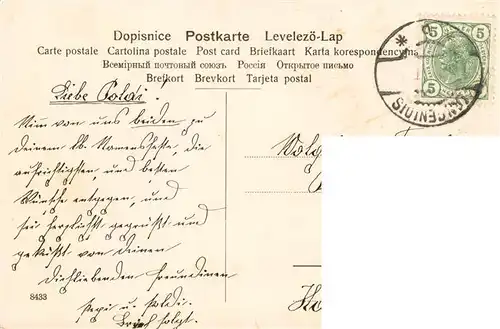 Dopisnice Postkarte Levelező-Lap
Carte postale Cartolina postale Post card Briefkaart Karta korespondencyjna
Всемірный почтовый союзъ Россія Открытое письмо
Brefkort Brevkort Tarjeta postal
5 5
5 5
Liebe Poldi!
Nim von uns beiden zu
Deinem lb. Namensfeste, die
aufrichtigsten, und besten
Wünsche entgegen, und
sei herzlichst gegrüßt und
geküßt von Deinen
Dichliebenden Freundinen
Pepi u. Poldi.
Brief folgt.
8433